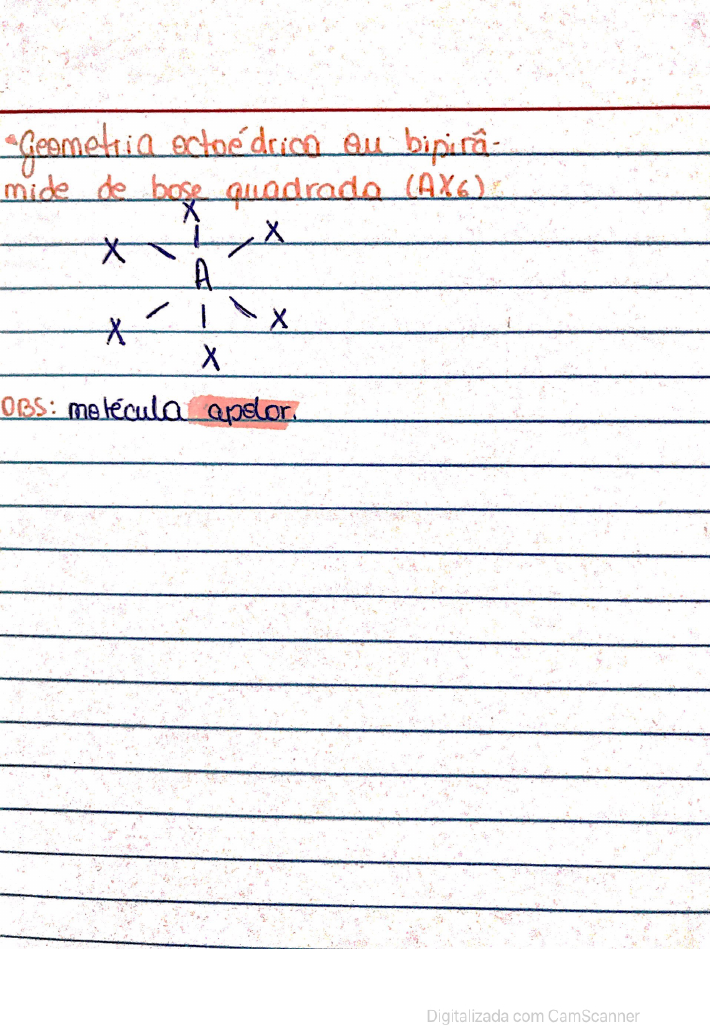 •Geometria octaédrica ou bipirâ-
mide de base quadrada (AX6)
X
X X
A
X X
X
OBS: molécula apolar.
Digitalizada com CamScanner